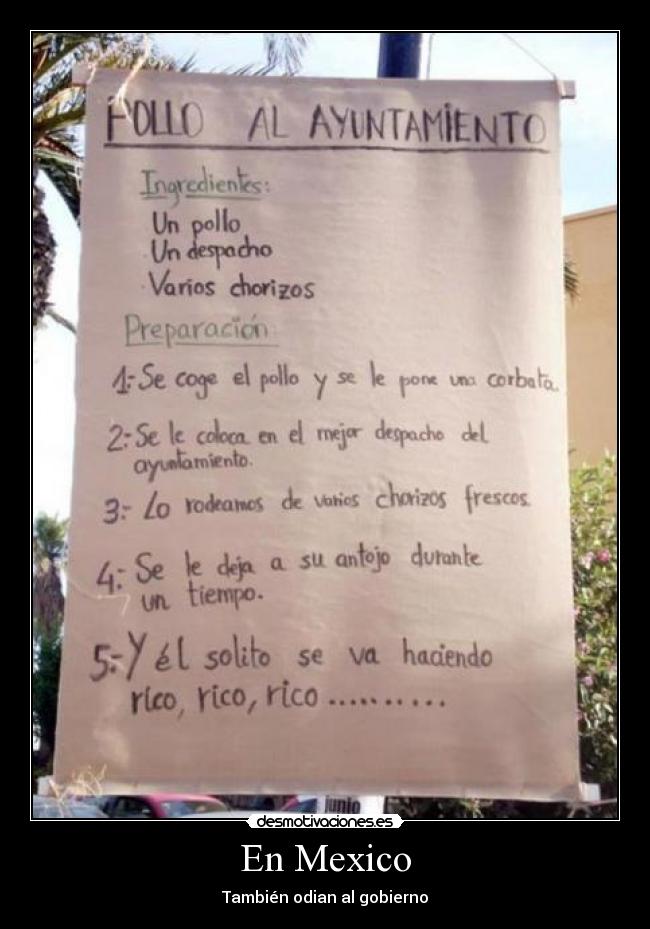 POLLO AL AYUNTAMIENTO
Ingredientes:
Un pollo
Un despacho
Varios chorizos
Preparación
1:- Se coge el pollo y se le pone una corbata.
2:- Se le coloca en el mejor despacho del
ayuntamiento.
3:- Lo rodeamos de varios chorizos frescos.
4:- Se le deja a su antojo durante
un tiempo.
5:- Y él solito se va haciendo
rico, rico, rico ..........
junio
desmotivaciones.es
En Mexico
También odian al gobierno